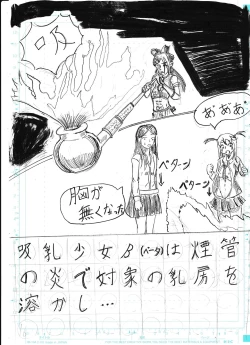 吸
あああ
ペターン
ペターン
脳が
無くなった
吸乳少女β(ベータ)は煙管
の炎で対象の乳房を
溶かし…